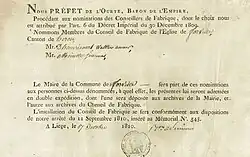 Nous PRÉFET DE L'OURTE, BARON DE L'EMPIRE,
Procédant aux nominations des Conseillers de Fabrique, dont le choix nous
est attribué par l'art. 6 du Décret Impérial du 30 Décembre 1809.
Nommons Membres du Conseil de Fabrique de l'Eglise de
Canton de
Mr.
Mr.
Le Maire de la Commune de sera part de ces nominations
aux personnes ci-dessus dénommées, à quel effet, les présentes lui seront adressées
en double expédition, dont l'une sera déposée aux archives de la Mairie, et
l'autre aux archives du Conseil de Fabrique.
L'installation des Conseillers se fera conformément aux dispositions de
notre arrêté du 12 Septembre 1810, inséré au Mémorial N.º 343.
A Liège, le 1810.